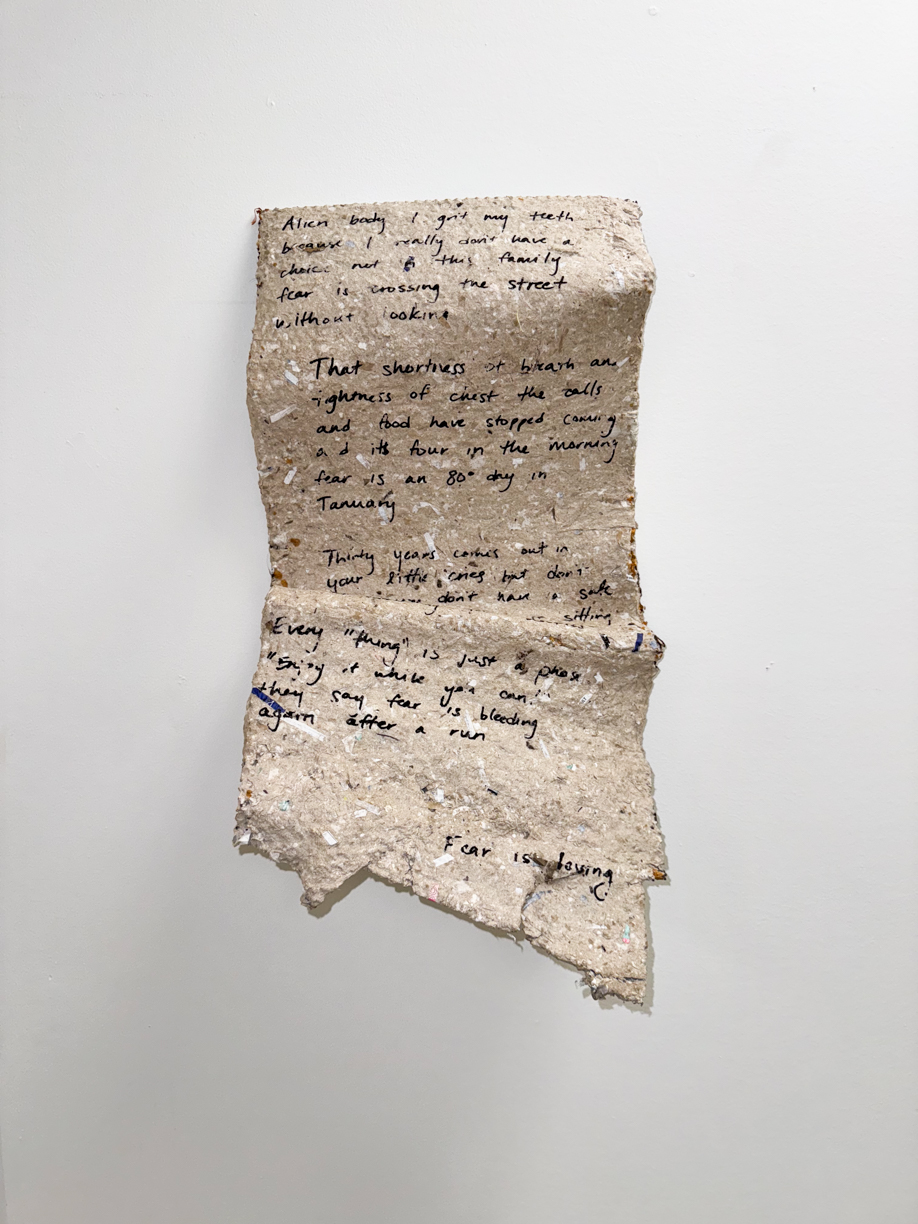 Alien body I grit my teeth
because I really don't have a
choice not in this family
fear is crossing the street
without looking
That shortness of breath and
tightness of chest the calls
and food have stopped coming
and its four in the morning
fear is an 80° day in
January
Thirty years comes out in
your little cries but don't
don't have a safe
sitting
Every "thing" is just a phase
"Enjoy it while you can"
they say fear is bleeding
again after a run
Fear is loving